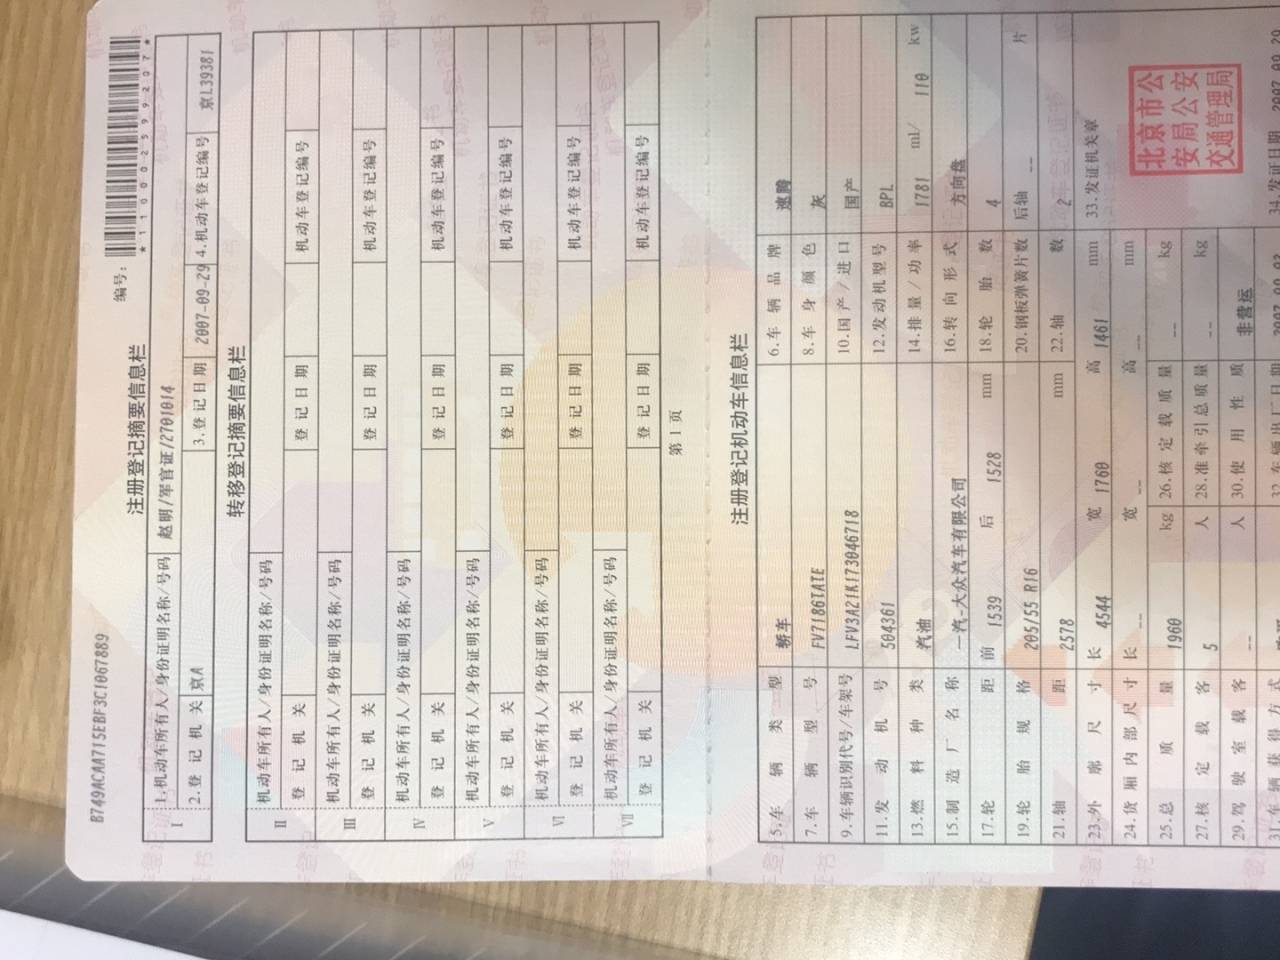 B749ACAA715EBF3C1067889
编号:
*110002599207*
注册登记摘要信息栏
I 1.机动车所有人/身份证明名称/号码 赵明/军官证/2701014
2.登记机关 京A 3.登记日期 2007-09-29 4.机动车登记编号 京L39381
转移登记摘要信息栏
II 机动车所有人/身份证明名称/号码
登记机关 登记日期 机动车登记编号
III 机动车所有人/身份证明名称/号码
登记机关 登记日期 机动车登记编号
IV 机动车所有人/身份证明名称/号码
登记机关 登记日期 机动车登记编号
V 机动车所有人/身份证明名称/号码
登记机关 登记日期 机动车登记编号
VI 机动车所有人/身份证明名称/号码
登记机关 登记日期 机动车登记编号
VII 机动车所有人/身份证明名称/号码
登记机关 登记日期 机动车登记编号
第 1 页
注册登记机动车信息栏
5.车辆类型 轿车 6.车辆品牌 速腾
7.车辆型号 FV7186TATE 8.车身颜色 灰
9.车辆识别代号/车架号 LFV3A21K173046718 10.国产/进口 国产
11.发动机号 504361 12.发动机型号 BPL
13.燃料种类 汽油 14.排量/功率 1781 ml/ 110 kw
15.制造厂名称 一汽-大众汽车有限公司 16.转向形式 方向盘
17.轮距 前 1539 后 1528 mm 18.轮胎数 4
19.轮胎规格 205/55 R16 20.钢板弹簧片数 后轴 -- 片
21.轴距 2578 mm 22.轴数 2
23.外廓尺寸 长 4544 宽 1760 高 1461 mm 33.发证机关章
24.货厢内部尺寸 长 -- 宽 -- 高 -- mm
25.总质量 1960 kg 26.核定载质量 -- kg
27.核定载客 5 人 28.准牵引总质量 -- kg
29.驾驶室载客 -- 人 30.使用性质 非营运
北京市公
安局公安
交通管理局
31.车辆获得方式 32.车辆出厂日期 34.发证日期